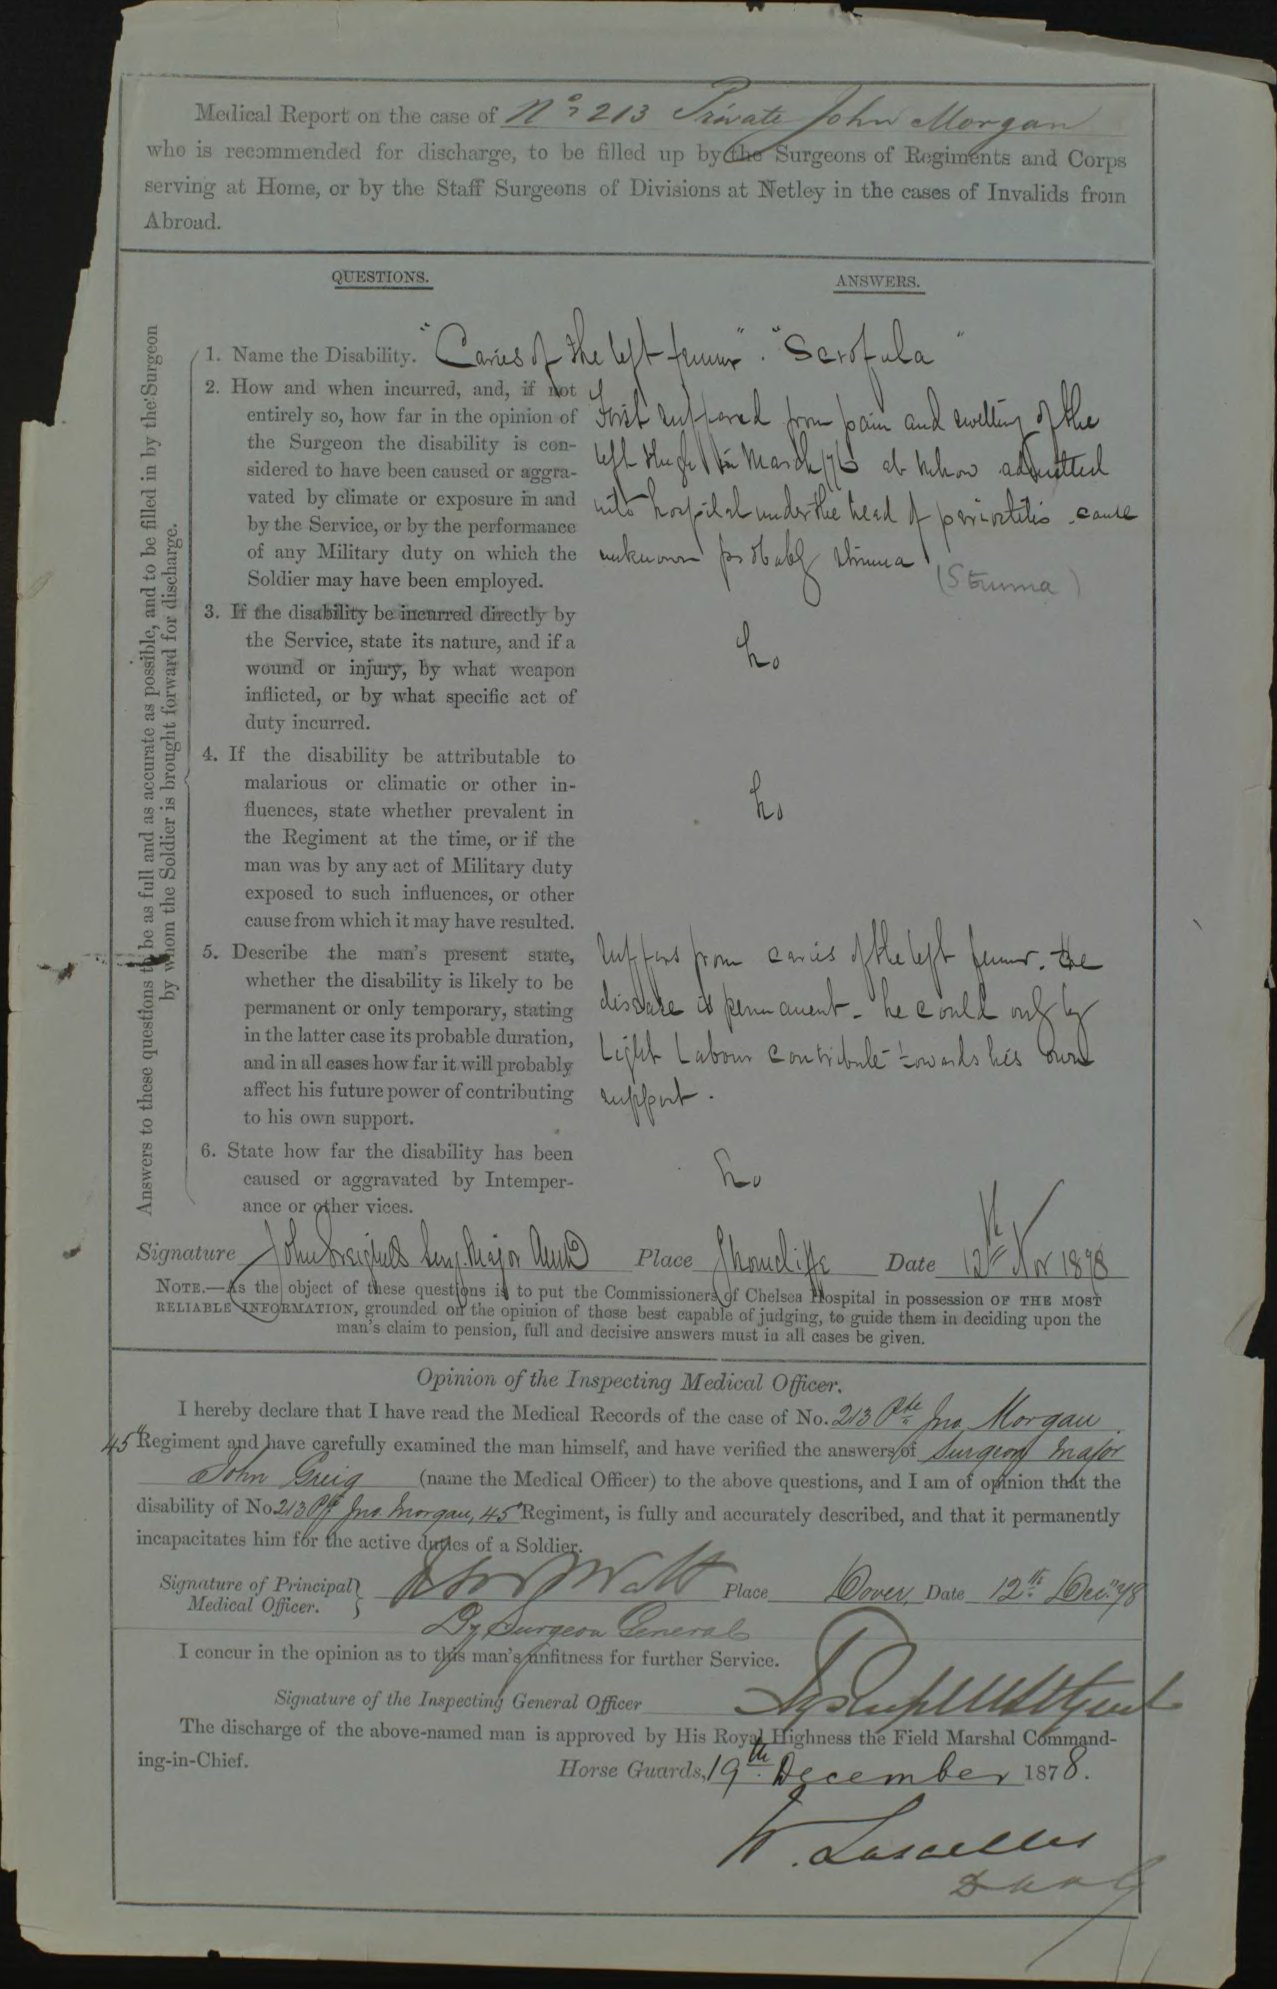 Medical Report on the case of No 213 Private John Morgan
who is recommended for discharge, to be filled up by the Surgeons of Regiments and Corps
serving at Home, or by the Staff Surgeons of Divisions at Netley in the cases of Invalids from
Abroad.
QUESTIONS.
ANSWERS.
Answers to these questions to be as full and as accurate as possible, and to be filled in by the Surgeon
by whom the Soldier is brought forward for discharge.
1. Name the Disability. "Caries of the left femur". "Scrofula"
2. How and when incurred, and, if not
entirely so, how far in the opinion of
the Surgeon the disability is con-
sidered to have been caused or aggra-
vated by climate or exposure in and
by the Service, or by the performance
of any Military duty on which the
Soldier may have been employed.
First suffered from pain and swelling of the
left thigh in March /76 at admitted
into hospital under the head of periostitis. cause
unknown probably struma
(Struma)
3. If the disability be incurred directly by
the Service, state its nature, and if a
wound or injury, by what weapon
inflicted, or by what specific act of
duty incurred.
No
4. If the disability be attributable to
malarious or climatic or other in-
fluences, state whether prevalent in
the Regiment at the time, or if the
man was by any act of Military duty
exposed to such influences, or other
cause from which it may have resulted.
No
5. Describe the man's present state,
whether the disability is likely to be
permanent or only temporary, stating
in the latter case its probable duration,
and in all cases how far it will probably
affect his future power of contributing
to his own support.
Suffers from caries of the left femur. The
disease is permanent - he could only by
Light Labour contribute towards his own
support.
6. State how far the disability has been
caused or aggravated by Intemper-
ance or other vices.
No
Signature John Greig Surg. Major Place Shorncliffe Date 12th Nov 1878
NOTE.—As the object of these questions is to put the Commissioners of Chelsea Hospital in possession OF THE MOST
RELIABLE INFORMATION, grounded on the opinion of those best capable of judging, to guide them in deciding upon the
man's claim to pension, full and decisive answers must in all cases be given.
Opinion of the Inspecting Medical Officer.
I hereby declare that I have read the Medical Records of the case of No. 213 Pte Jno. Morgan
45th Regiment and have carefully examined the man himself, and have verified the answers of Surgeon Major
John Greig (name the Medical Officer) to the above questions, and I am of opinion that the
disability of No 213 Pte Jno. Morgan, 45th Regiment, is fully and accurately described, and that it permanently
incapacitates him for the active duties of a Soldier.
Signature of Principal
Medical Officer. Watt Place Dover, Date 12th Dec. 78
Dy Surgeon General
I concur in the opinion as to this man's unfitness for further Service.
Signature of the Inspecting General Officer
The discharge of the above-named man is approved by His Royal Highness the Field Marshal Command-
ing-in-Chief.
Horse Guards, 19th December 1878.
W. Lascelles
DAAG